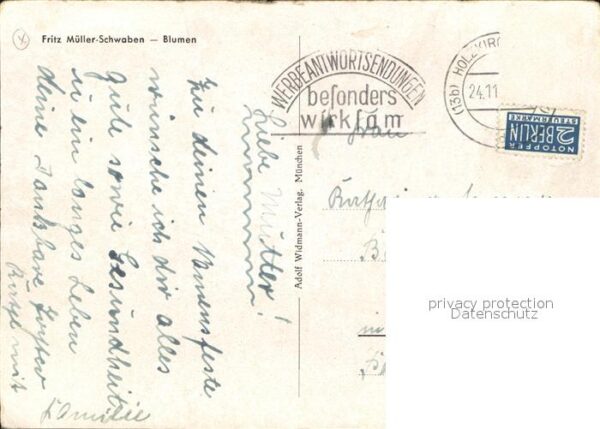 Fritz Müller-Schwaben — Blumen
Liebe Mutter!
Zu deinem Namensfeste
wünsche ich dir alles
Gute sowie Gesundheit
in ein langes Leben
deine Dankbare
mit
Familie
Adolf Widmann-Verlag. München
WERBEANTWORTSENDUNGEN
besonders
wirksam
(13b) HOLZKIRC
24.11
NOTOPFER
2 BERLIN
STEUERMARKE
Frau
in
privacy protection
Datenschutz